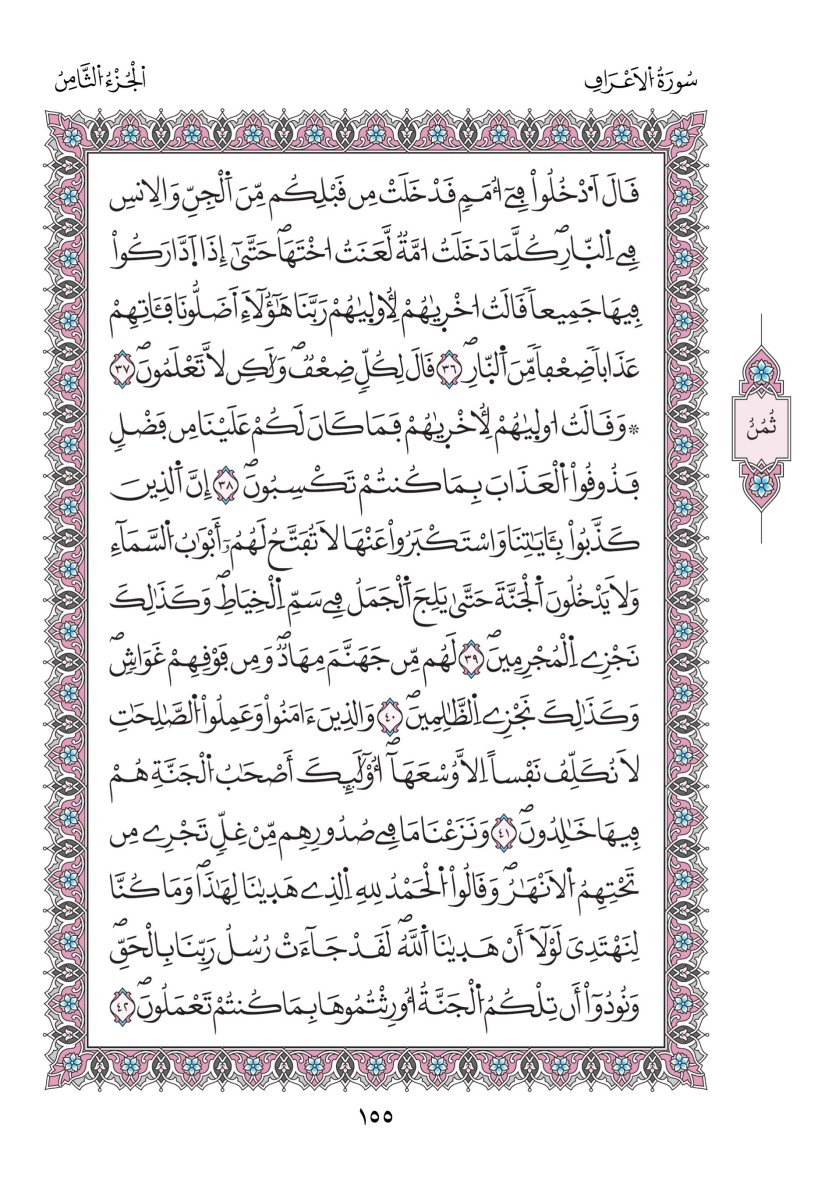 سُورَةُ اُ۬لَاعْرَافِ
اَ۬لْجُزْءُ اُ۬لثَّامِنُ
قَالَ اَ۟دْخُلُواْ فِےٓ أُمَمٖ قَدْ خَلَتْ مِن قَبْلِكُم مِّنَ اَ۬لْجِنِّ وَالِانسِ
فِے اِ۬لنّ۪ارِۖ كُلَّمَا دَخَلَتُ ا۟مَّةٞ لَّعَنَتُ ا۟خْتَهَاۖ حَتَّىٰٓ إِذَا اَ۪دَّارَكُواْ
فِيهَا جَمِيعاٗ قَالَتُ ا۟خْر۪يٰهُمْ لِأُول۪يٰهُمْ رَبَّنَا هَٰٓؤُلَآءِ اَ۬ضَلُّونَا فَـَٔاتِهِمْ
عَذَاباٗ ضِعْفاٗ مِّنَ اَ۬لنّ۪ارِۖ ٣٦ قَالَ لِكُلّٖ ضِعْفٞۖ وَلَٰكِن لَّا تَعْلَمُونَۖ ٣٧
۞ وَقَالَتُ ا۟ول۪يٰهُمْ لِأُخْر۪يٰهُمْ فَمَا كَانَ لَكُمْ عَلَيْنَا مِن فَضْلٖ
فَذُوقُواْ اُ۬لْعَذَابَ بِمَا كُنتُمْ تَكْسِبُونَۖ ٣٨ إِنَّ اَ۬لذِينَ
كَذَّبُواْ بِـَٔايَٰتِنَا وَاسْتَكْبَرُواْ عَنْهَا لَا تُفَتَّحُ لَهُمُۥٓ أَبْوَٰبُ اُ۬لسَّمَآءِ
وَلَا يَدْخُلُونَ اَ۬لْجَنَّةَ حَتَّىٰ يَلِجَ اَ۬لْجَمَلُ فِے سَمِّ اِ۬لْخِيَاطِۖ وَكَذَٰلِكَ
نَجْزِے اِ۬لْمُجْرِمِينَۖ ٣٩ لَهُم مِّن جَهَنَّمَ مِهَادٞۖ وَمِن فَوْقِهِمْ غَوَاشٖۖ
وَكَذَٰلِكَ نَجْزِے اِ۬لظَّٰلِمِينَۖ ٤٠ وَالذِينَ ءَامَنُواْ وَعَمِلُواْ اُ۬لصَّٰلِحَٰتِ
لَا نُكَلِّفُ نَفْساً اِلَّا وُسْعَهَآۖ أُوْلَٰٓئِكَ أَصْحَٰبُ اُ۬لْجَنَّةِ هُمْ
فِيهَا خَٰلِدُونَۖ ٤١ وَنَزَعْنَا مَا فِے صُدُورِهِم مِّنْ غِلّٖ تَجْرِے مِن
تَحْتِهِمُ اُ۬لَانْهَٰرُۖ وَقَالُواْ اُ۬لْحَمْدُ لِلهِ اِ۬لذِے هَد۪يٰنَا لِهَٰذَاۖ وَمَا كُنَّا
لِنَهْتَدِيَ لَوْلَآ أَنْ هَد۪يٰنَا اَ۬للَّهُۖ لَقَدْ جَآءَتْ رُسُلُ رَبِّنَا بِالْحَقِّۖ
وَنُودُوٓاْ أَن تِلْكُمُ اُ۬لْجَنَّةُ أُورِثْتُمُوهَا بِمَا كُنتُمْ تَعْمَلُونَۖ ٤٢
ثُمُنُ
١٥٥